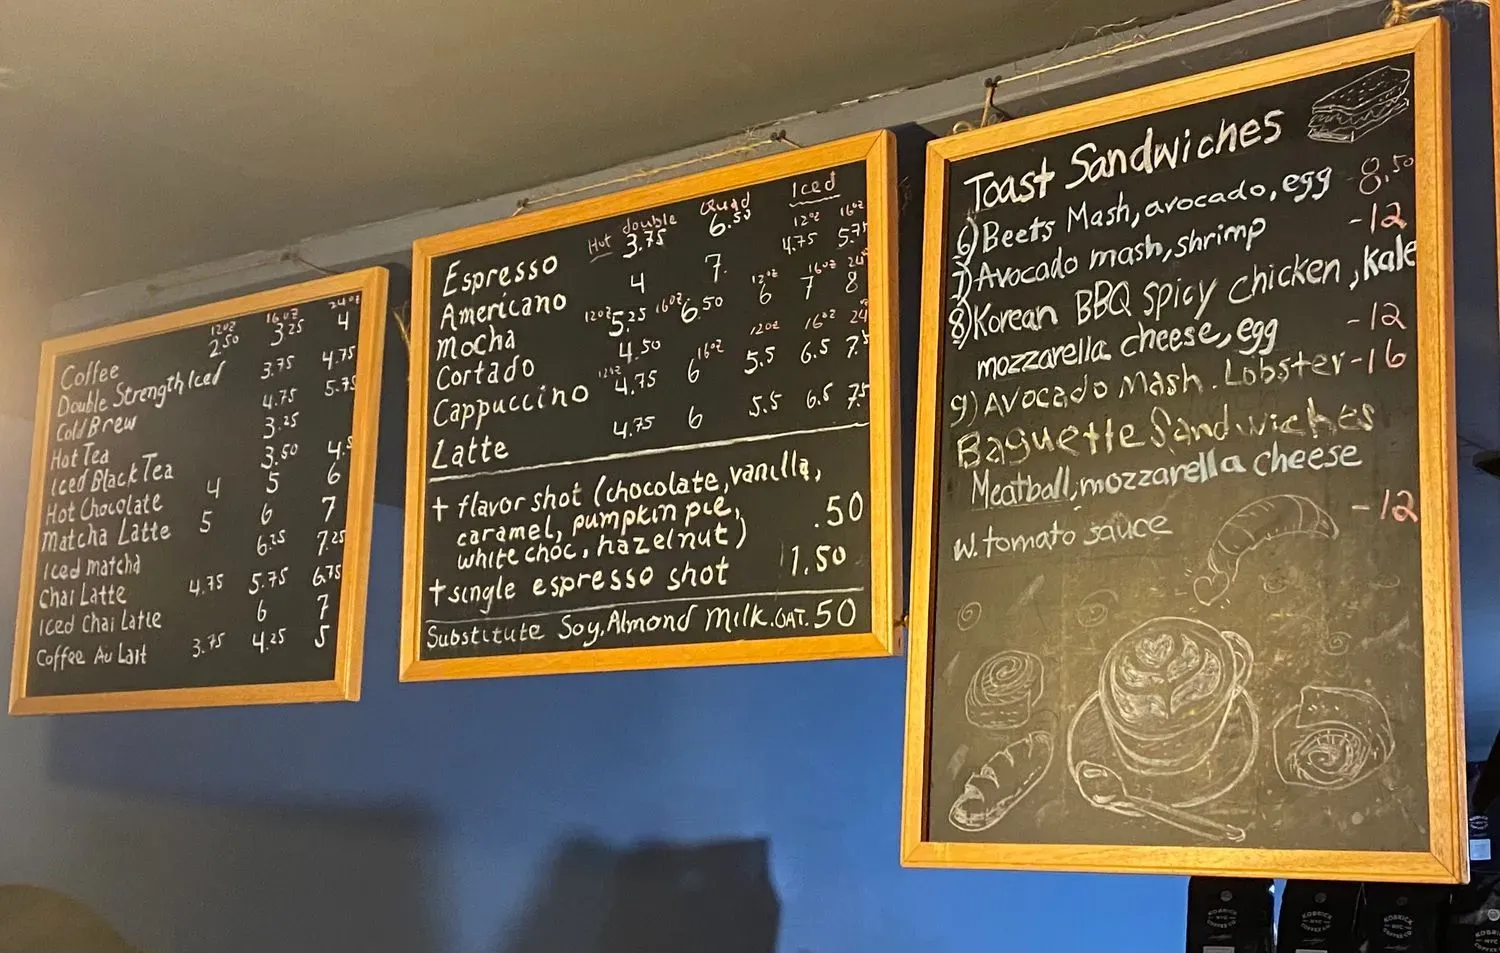 12oz 16oz 24oz
Coffee 2.50 3.25 4
Double Strength Iced 3.75 4.75
Cold Brew 4.75 5.75
Hot Tea 3.25
Iced Black Tea 3.50 4.5
Hot Chocolate 4 5 6
Matcha Latte 5 6 7
Iced matcha 6.25 7.25
Chai Latte 4.75 5.75 6.75
Iced Chai Latte 6 7
Coffee Au Lait 3.75 4.25 5
Hot double Quad Iced
12oz 16oz
Espresso 3.75 6.50 4.75 5.75
Americano 4 7.
12oz 16oz 24
Mocha 12oz 5.25 16oz 6.50 6 7 8
Cortado 4.50
12oz 16oz 12oz 16oz 24
Cappuccino 4.75 6 5.5 6.5 7.5
Latte 4.75 6 5.5 6.5 7.5
+ flavor shot (chocolate, vanilla,
caramel, pumpkin pie,
white choc, hazelnut) .50
+single espresso shot 1.50
Substitute Soy, Almond Milk.OAT .50
Toast Sandwiches
6) Beets Mash, avocado, egg 8.50
7) Avocado mash, shrimp -12
8) Korean BBQ Spicy chicken, kale
mozzarella cheese, egg -12
9) Avocado Mash. Lobster -16
Baguette Sandwiches
Meatball, mozzarella cheese
w. tomato sauce -12
KOBRICK
NYC
COFFEE CO
KOBRICK
NYC
COFFEE CO
KOBRICK
NYC
COFFEE CO